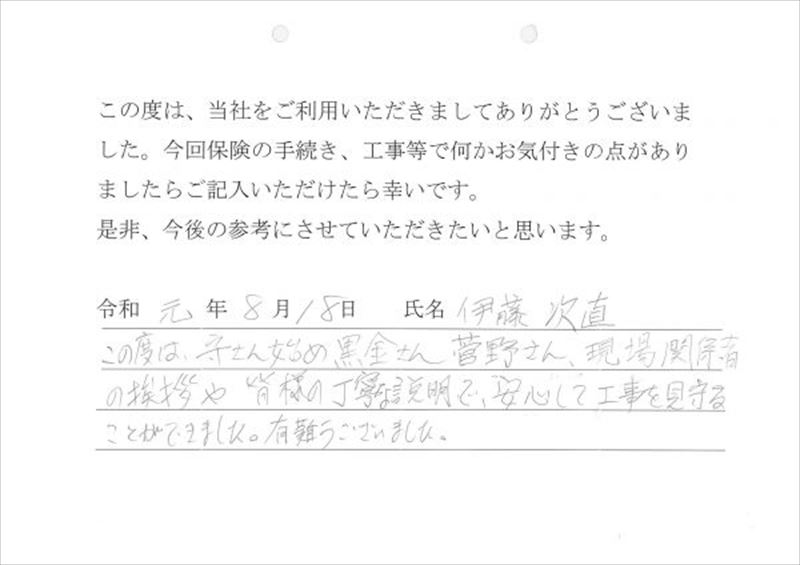 この度は、当社をご利用いただきましてありがとうございま
した。今回保険の手続き、工事等で何かお気付きの点があり
ましたらご記入いただけたら幸いです。
是非、今後の参考にさせていただきたいと思います。
令和 元 年 8 月 18日 氏名 伊藤 次直
この度は、 さん始め黒金さん 菅野さん、現場関係者
の挨拶や 皆様の丁寧な説明で、安心して工事を見守る
ことができました。有難うございました。